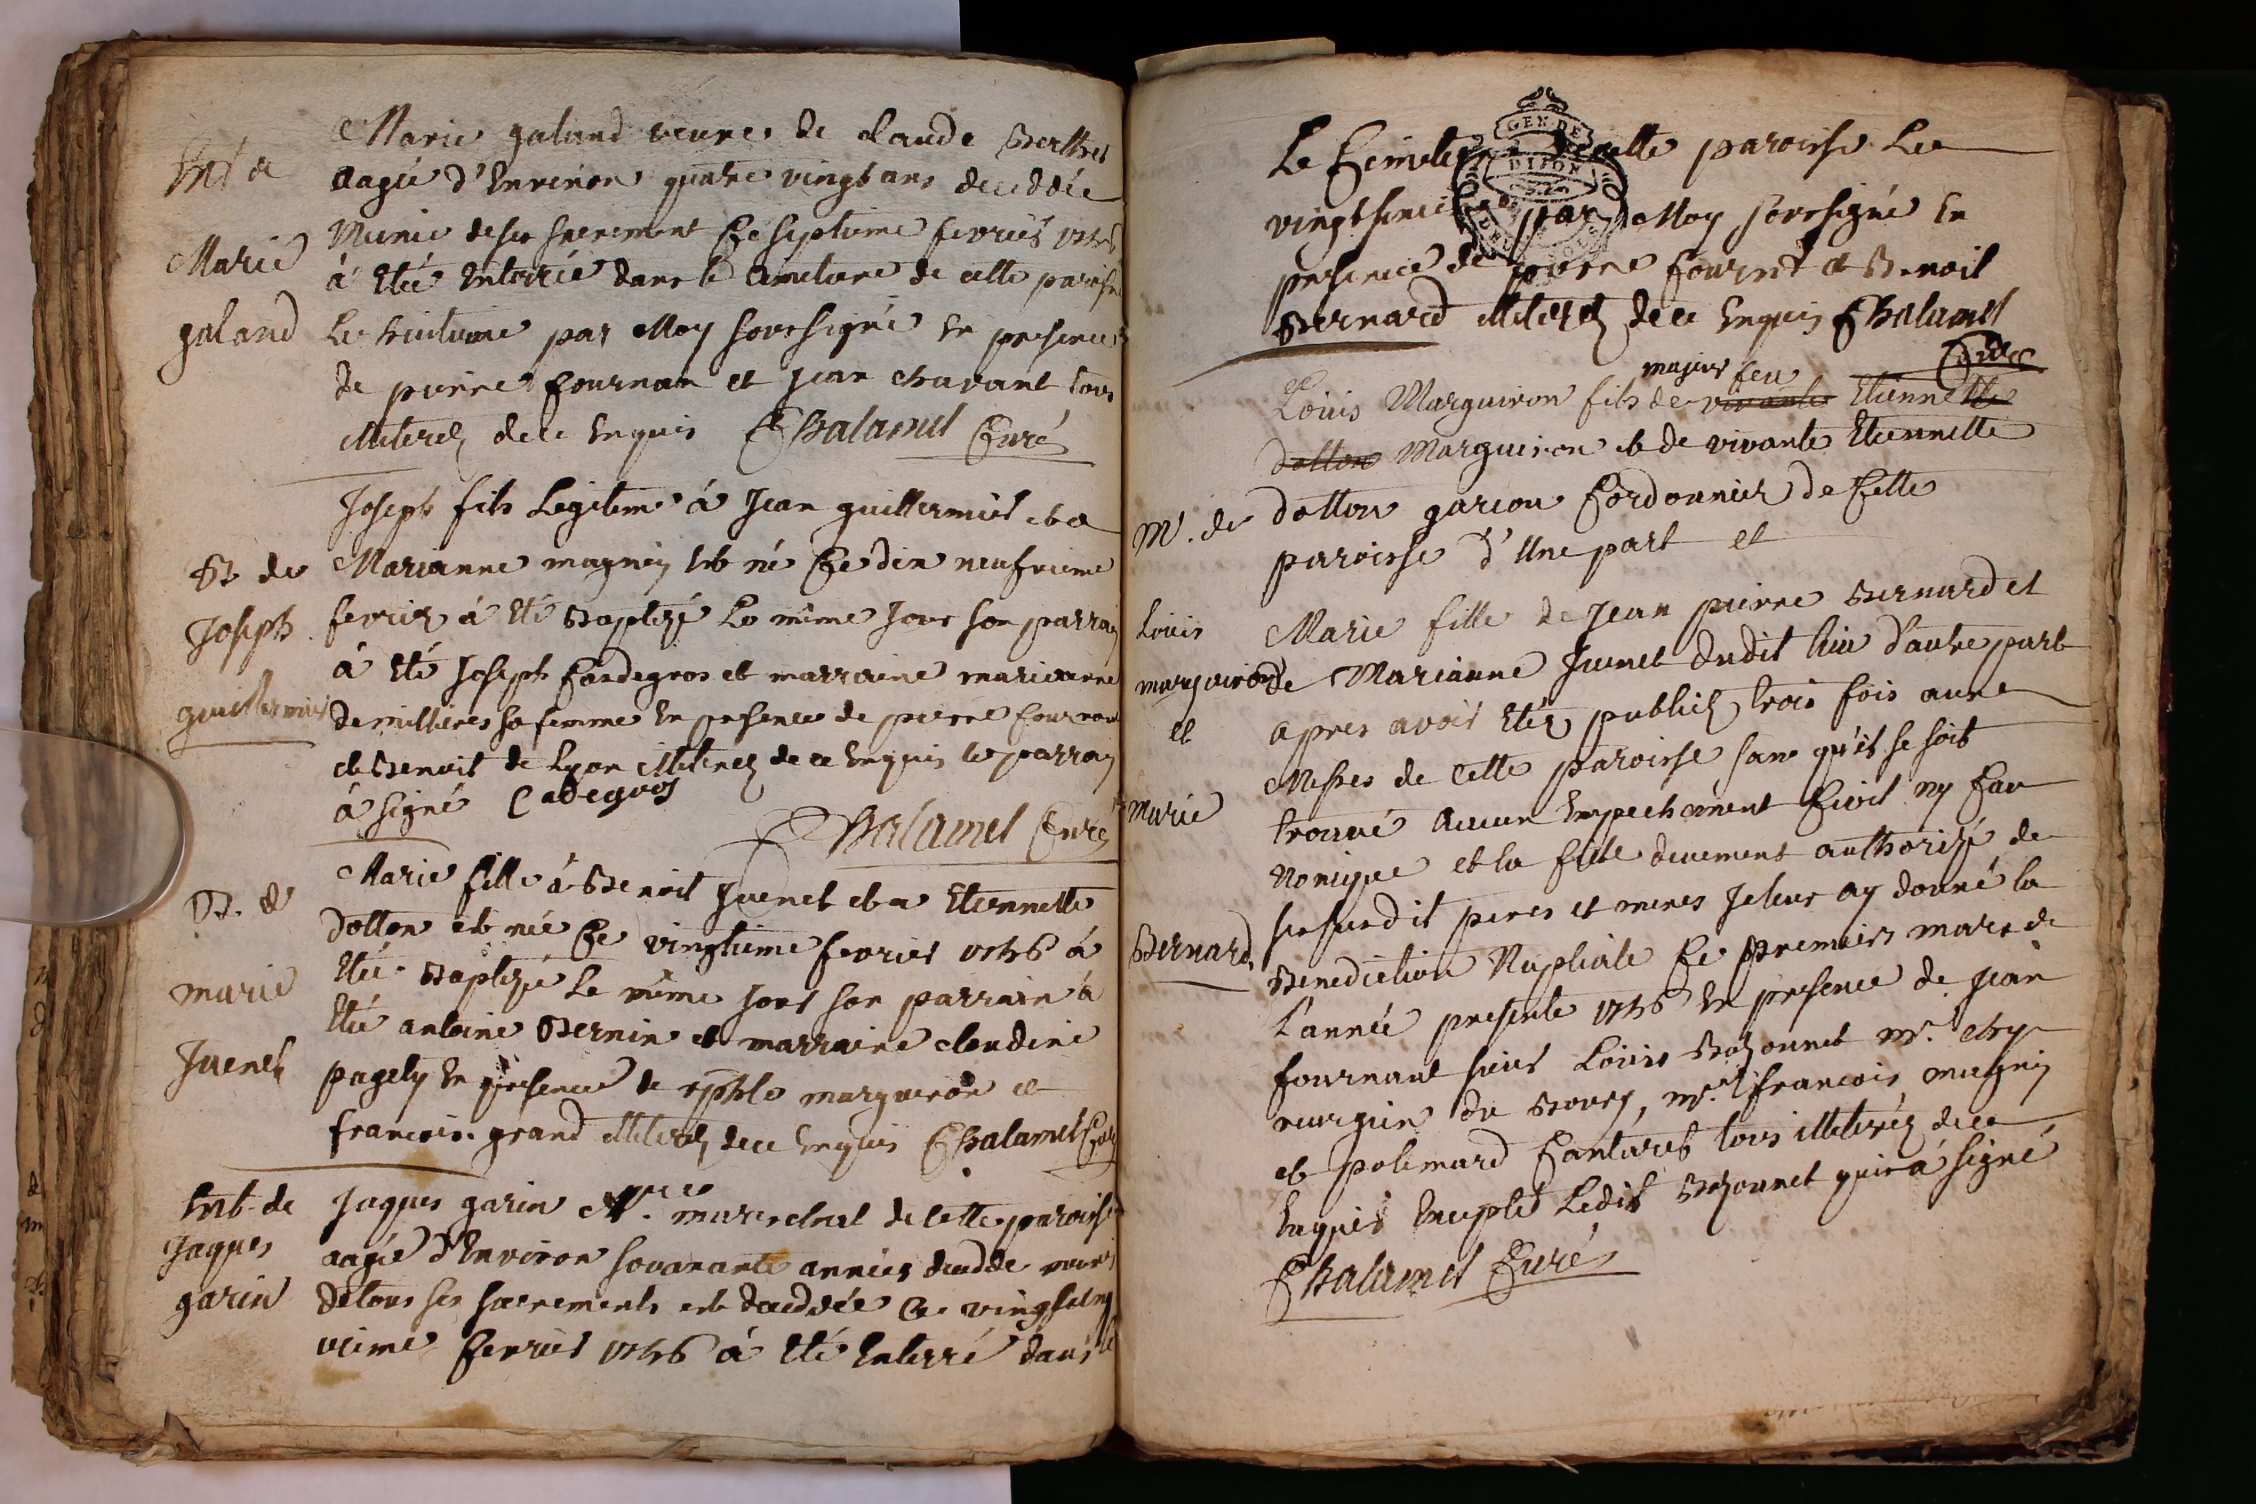 Ent de
Marie
galand
Marie galand veuve de claude Berthet
aagée d'Environ quatre vingt ans decedée
Munie de ses sacrement Ce septieme fevrier 1746
à Eté Enterrée dans le Cimetiere de cette paroisse
Le huitieme par Moy soussigné En presence
de pierre fournan et jean chavant tous
illiterez de ce Enquis Chalamel Curé
B. de
Joseph
guillermier
Joseph fils Legitime à Jean guillermier et a
Marianne magnin est né Ce dix neufvieme
fevrier à Eté Baptizé Le même Jour son parrain
à Eté Joseph Cardegros et marraine marianne
demillieres sa femme En presence de pierre fournan
et Benoit de Lyon illiterez de ce Enquis le parrain
à signé Cadegros
Chalamel Curé
B. de
marie
Juenet
Marie fille à Benoit Juenet et a Etiennette
dotton est née Ce vingtieme fevrier 1746 à
Eté Baptizée Le même Jour son parrain à
Eté antoine Bernin et marraine claudine
pagety En presence de marguiron et
francois grand illiterez de ce Enquis Chalamel Curé
Ent. de
Jaques
garin
Jaques garin Me marechal de cette paroisse
aagé d'Environ soixante années decedde muni
de tous ses sacrements est decedée Ce vingt
fevrier 1746 à Eté Enterré dans le
GEN. DE
DIJON
Le Cimetiere de cette paroisse Le
par Moy soussigné En
presence de pierre fournt et Benoit
Bernard illiterez de ce Enquis Chalamel
Curé
M. de
Louis
marguiron
et
Marie
Bernard
majeur feu
Louis Marguiron fils de vivante Etiennette
dotton Marguiron et de vivante Etiennette
dotton garcon Cordonnier de Cette
paroisse d'Une part et
Marie fille de Jean pierre Bernard et
de Marianne Juenet dudit lieu d'autre part
apres avoir Etéz publiéz trois fois aux
Messes de Cette paroisse sans qu'il se soit
trouvé aucun Empechement Civil ny Can
nonique et la fille deuement authorizé de
ses susdit peres et meres Je leur ay donné la
Benediction Nuptiale Ce premier mars de
L'année presente 1746 En presence de jean
fournant sieur Louis Bozonnet Mr. chy
rurgien du Bourg, Mr. francois magnin
et polimard Cantaret tous illiteréz de ce
Enquis Excepté Ledit Bozonnet qui à signé
Chalamel Curé